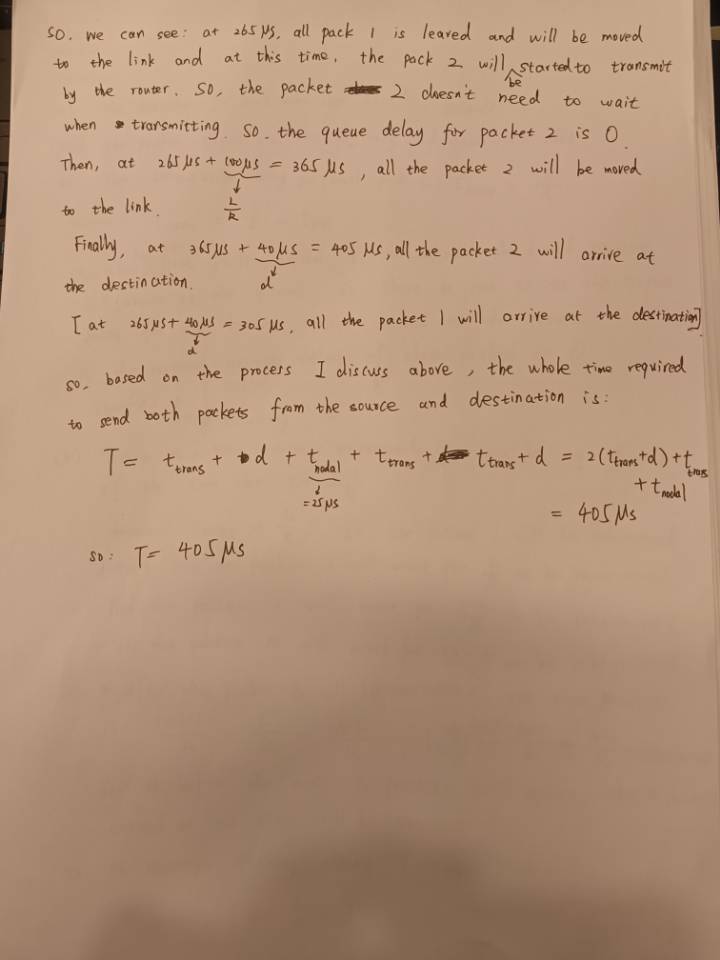 So. we can see: at 265 μs, all pack 1 is leaved and will be moved
to the link and at this time, the pack 2 will be started to transmit
by the router. So, the packet 2 doesn't need to wait
when transmitting. So. the queue delay for packet 2 is 0.
Then, at 265 μs + 100 μs = 365 μs, all the packet 2 will be moved
to the link. L/R
Finally, at 365 μs + 40 μs = 405 μs, all the packet 2 will arrive at
the destination. d
[at 265 μs + 40 μs = 305 μs, all the packet 1 will arrive at the destination]
d
so, based on the process I discuss above, the whole time required
to send both packets from the source and destination is:
T = t_trans + d + t_nodal + t_trans + t_trans + d = 2(t_trans + d) + t_trans
+ t_nodal
= 25 μs
= 405 μs
so: T = 405 μs